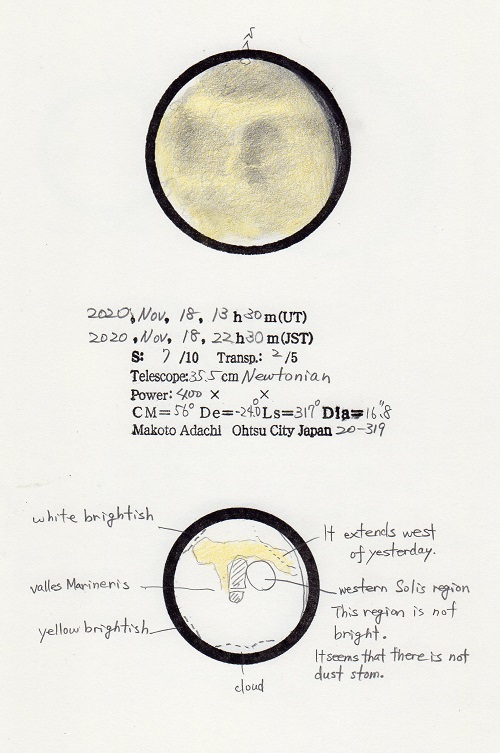 S
2020, Nov, 18, 13 h 30 m (UT)
2020, Nov, 18, 22 h 30 m (JST)
S: 7 /10 Transp.: 2 /5
Telescope: 35.5 cm Newtonian
Power: 400 × ×
CM=56° De=-24.0° Ls=317° Dia=16."8
Makoto Adachi Ohtsu City Japan 20-319
white brightish
It extends west
of yesterday.
valles Marineris
western Solis region
This region is not
bright.
yellow brightish
It seems that there is not
dust stom.
cloud